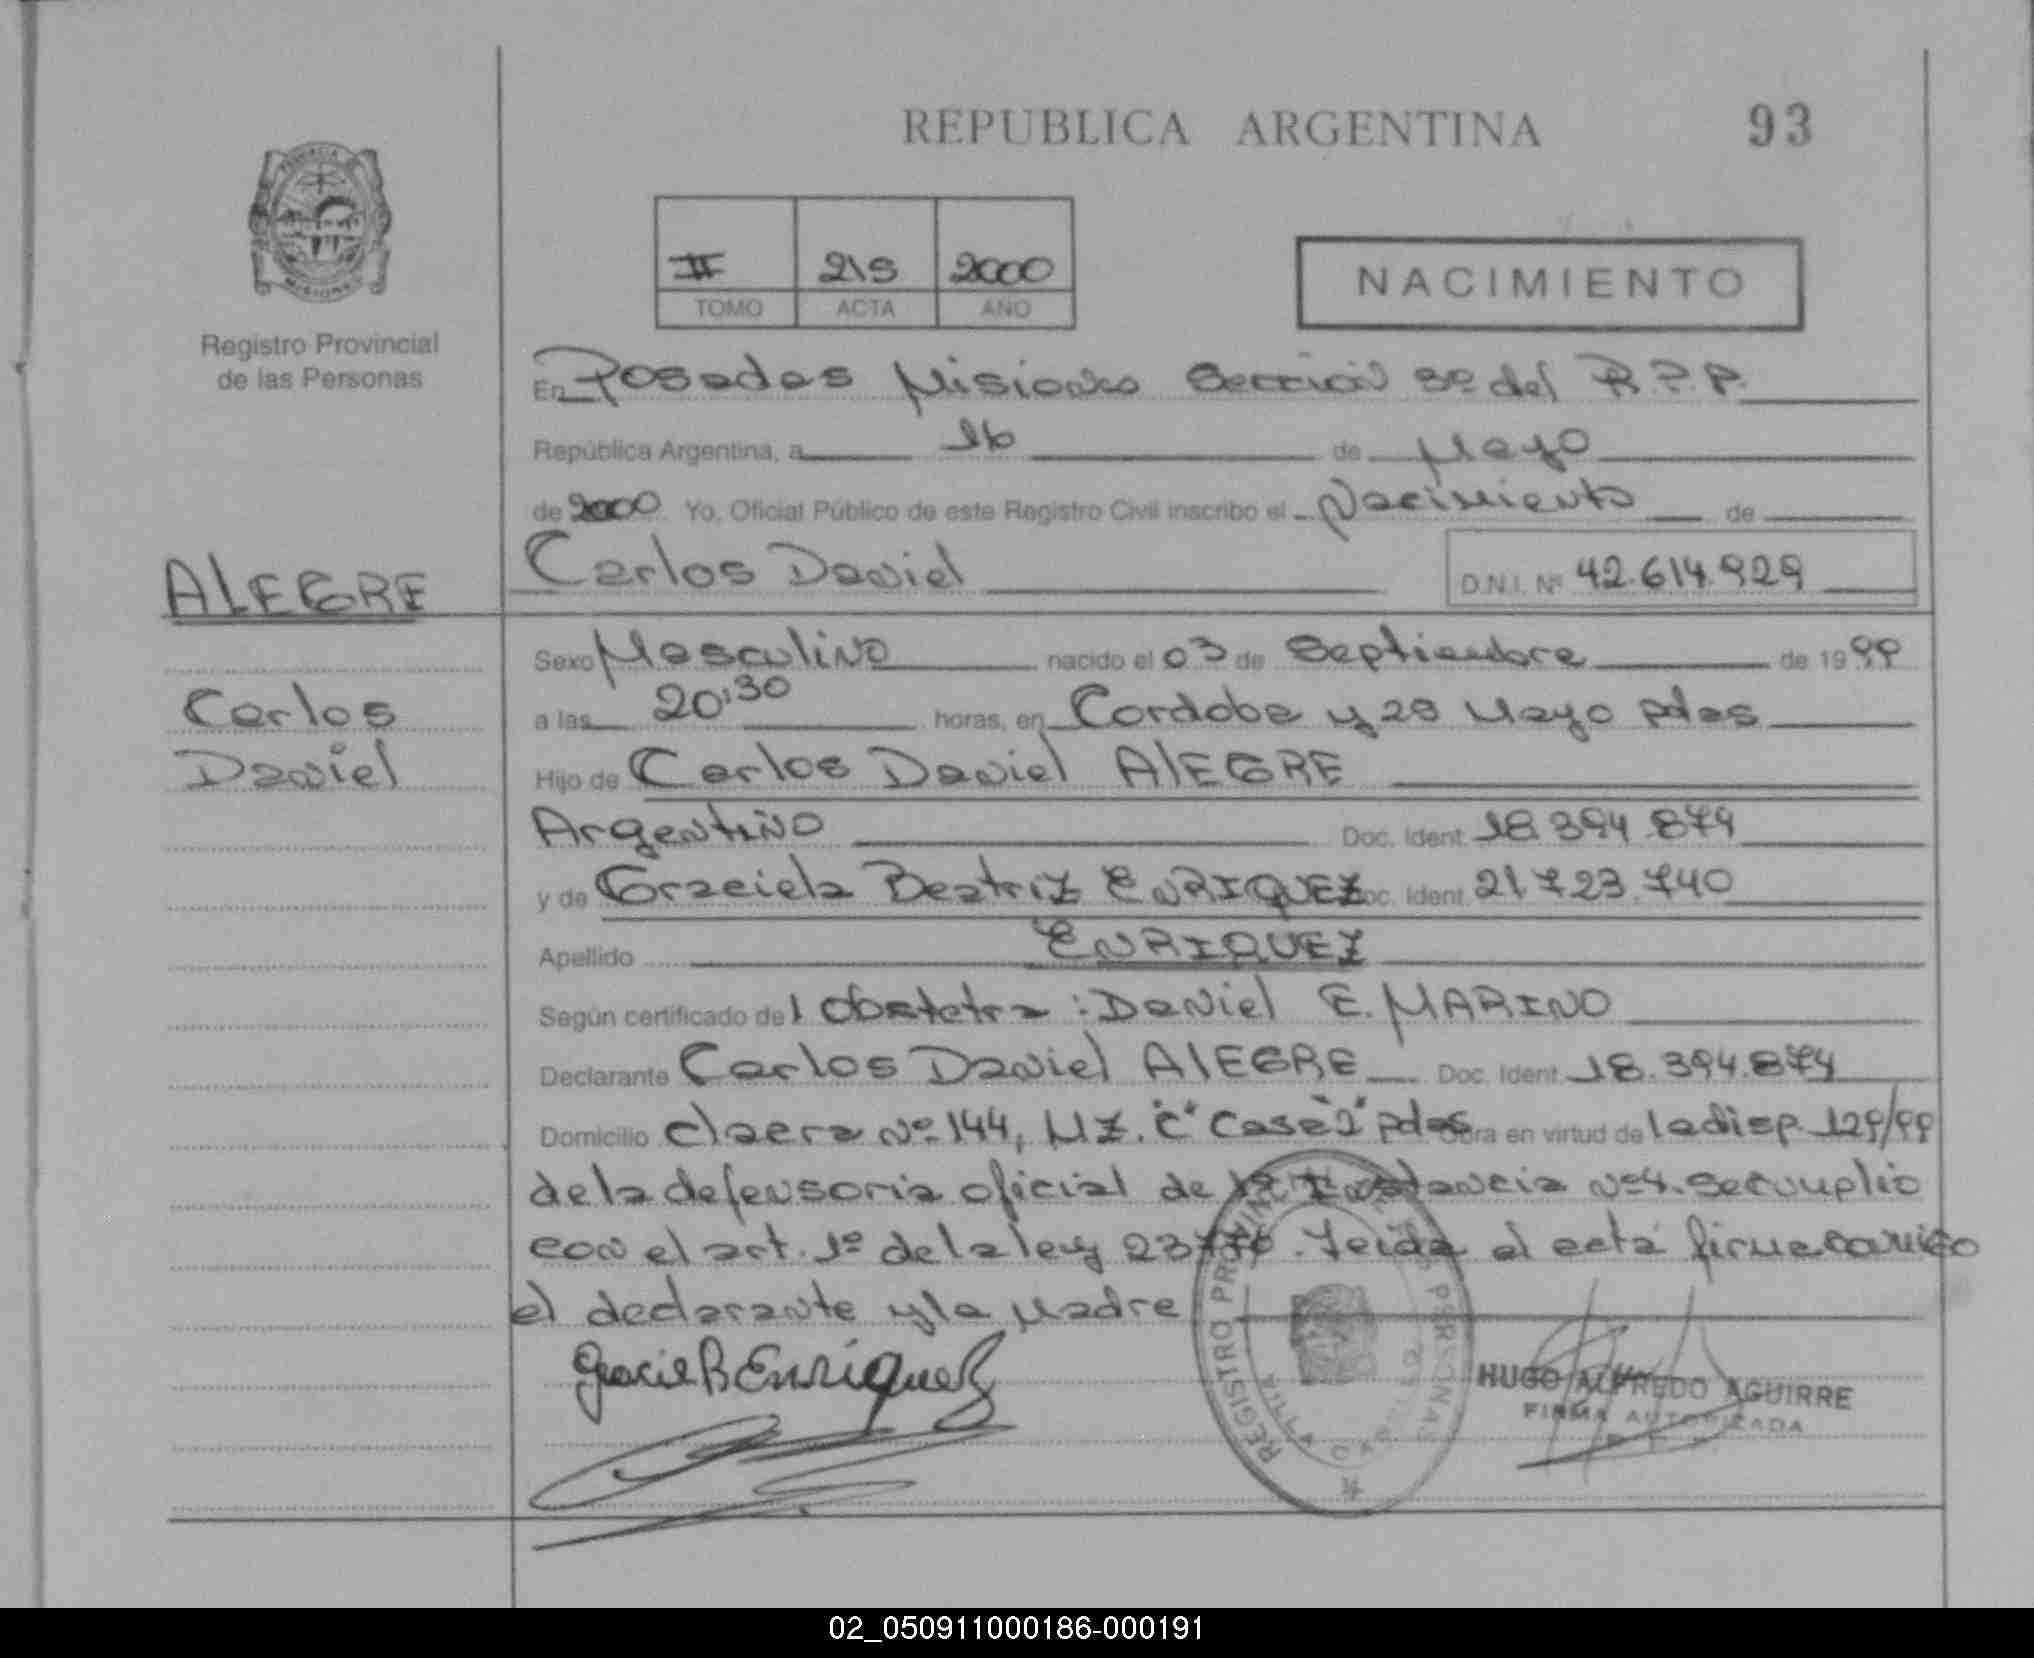 REPUBLICA ARGENTINA
93
PROVINCIA DE
MISIONES
Registro Provincial
de las Personas
II 215 2000
TOMO ACTA AÑO
NACIMIENTO
En Posadas Misiones Sección 3º del R.P.P.
República Argentina, a 16 de Mayo
de 2000 Yo, Oficial Público de este Registro Civil inscribo el Nacimiento de
Carlos Daniel
D.N.I. Nº 42.614.929
ALEGRE
Carlos
Daniel
Sexo Masculino nacido el 03 de Septiembre de 1999
a las 20:30 horas, en Cordoba y 28 Mayo pdas
Hijo de Carlos Daniel AlEGRE
Argentino Doc. Ident. 18.394.874
y de Graciela Beatriz ENRIQUEZ Doc. Ident. 21.723.740
Apellido ENRIQUEZ
Según certificado del Obstetra: Daniel E. MARINO
Declarante Carlos Daniel AlEGRE Doc. Ident. 18.394.874
Domicilio claera Nº 144, MZ. "C" Casa "2" pdas Obra en virtud de la disp. 129/99
de la defensoria oficial de 1ª Instancia Nº 4. Se cumplio
con el art. 1º de la ley 23776. Leida el acta firma conmigo
el declarante y la Madre
Graciel B Enriquez
REGISTRO PROVINCIAL DE LAS PERSONAS
VILLA CABELLO
HUGO ALFREDO AGUIRRE
FIRMA AUTORIZADA
02_050911000186-000191